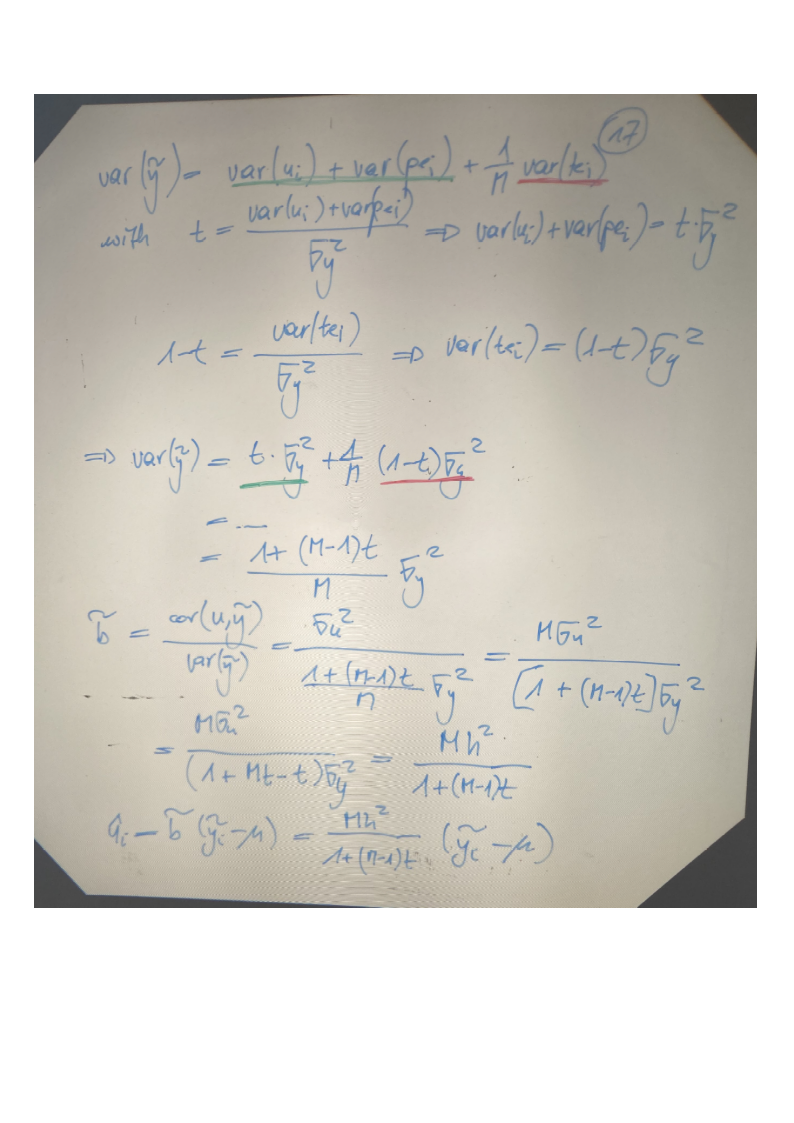 17
var(ỹ) = var(u_i) + var(pe_i) + 1/M var(te_i)
with t = (var(u_i) + var(pe_i)) / σ_y² ⇒ var(u_i) + var(pe_i) = t · σ_y²
1-t = var(te_i) / σ_y² ⇒ var(te_i) = (1-t) σ_y²
⇒ var(ỹ) = t · σ_y² + 1/M (1-t) σ_y²
= ...
= (1 + (M-1)t) / M σ_y²
b̃ = cov(u,ỹ) / var(ỹ) = σ_u² / ((1 + (M-1)t) / M σ_y²) = M σ_u² / ([1 + (M-1)t] σ_y²)
= M σ_u² / ((1 + Mt - t) σ_y²) = M h² / (1 + (M-1)t)
û_i = b̃ (ỹ_i - μ) = M h² / (1 + (M-1)t) (ỹ_i - μ)